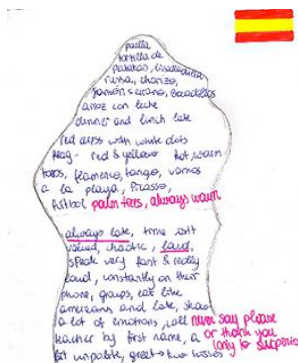 paella
tortilla de
patatas,
rusa, chorizo,
jamón serrano, bocadillos
arroz con leche
dinner and lunch late
red dress with white dots
flag - red & yellow hot, warm
toros, flamenco, tango, vamos
a la playa, Picasso,
fútbol palm trees, always warm
always late, time isn't
valued, chaotic, loud,
speak very fast & really
loud, constantly on their
phone, groups, eat like
americans and late, show
a lot of emotions, call never say please
teacher by first name, a or thank you
bit unpolite, greet → two kisses (only to superiors